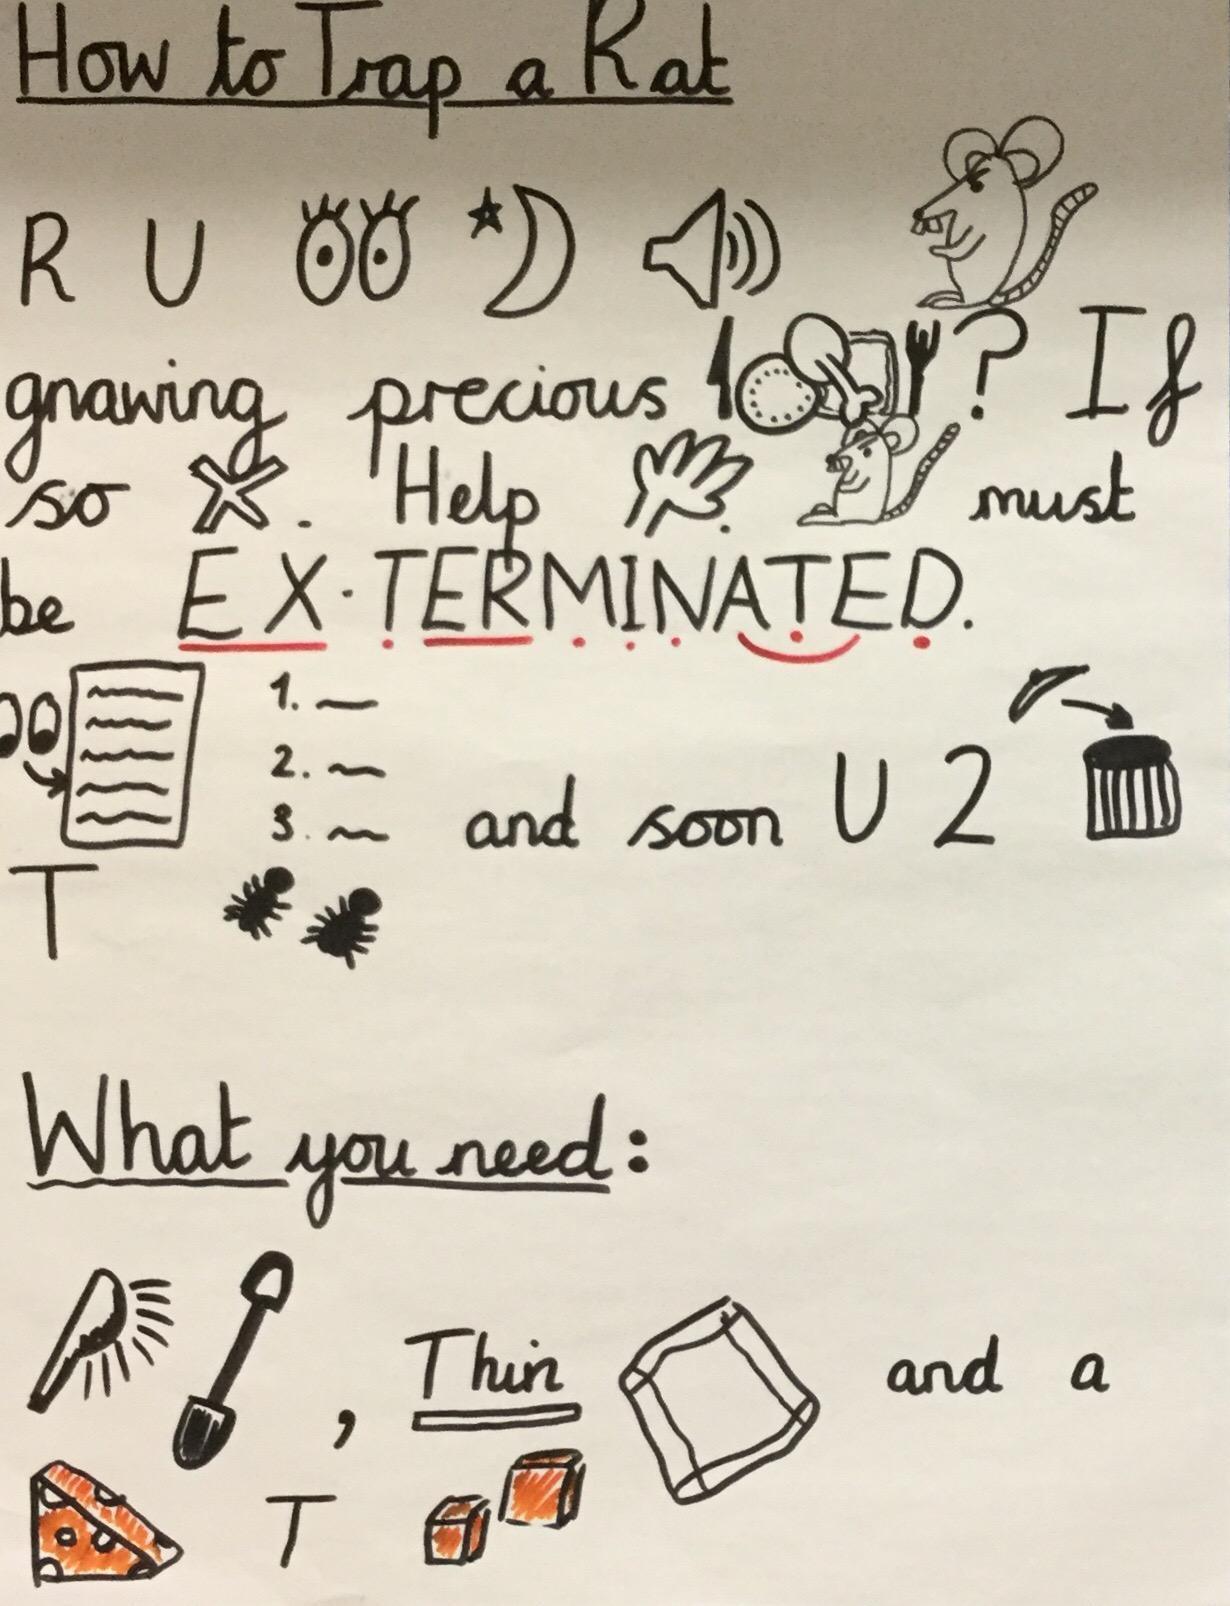 How to Trap a Rat
R U
gnawing precious ? If
so . Help . must
be EX·TERMINATED.
1.
2.
3.
and soon U 2
T
What you need:
, Thin and a
T